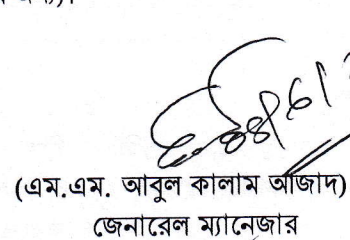 (এম.এম. আবুল কালাম আজাদ)
জেনারেল ম্যানেজার